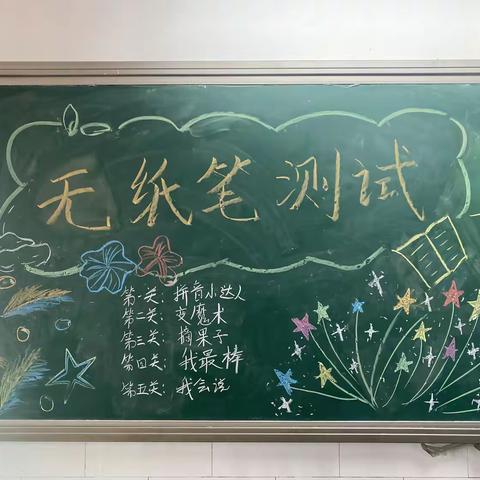 无纸笔测试
第一关：拼音小达人
第二关：变魔术
第三关：摘果子
第四关：我最棒
第五关：我会说